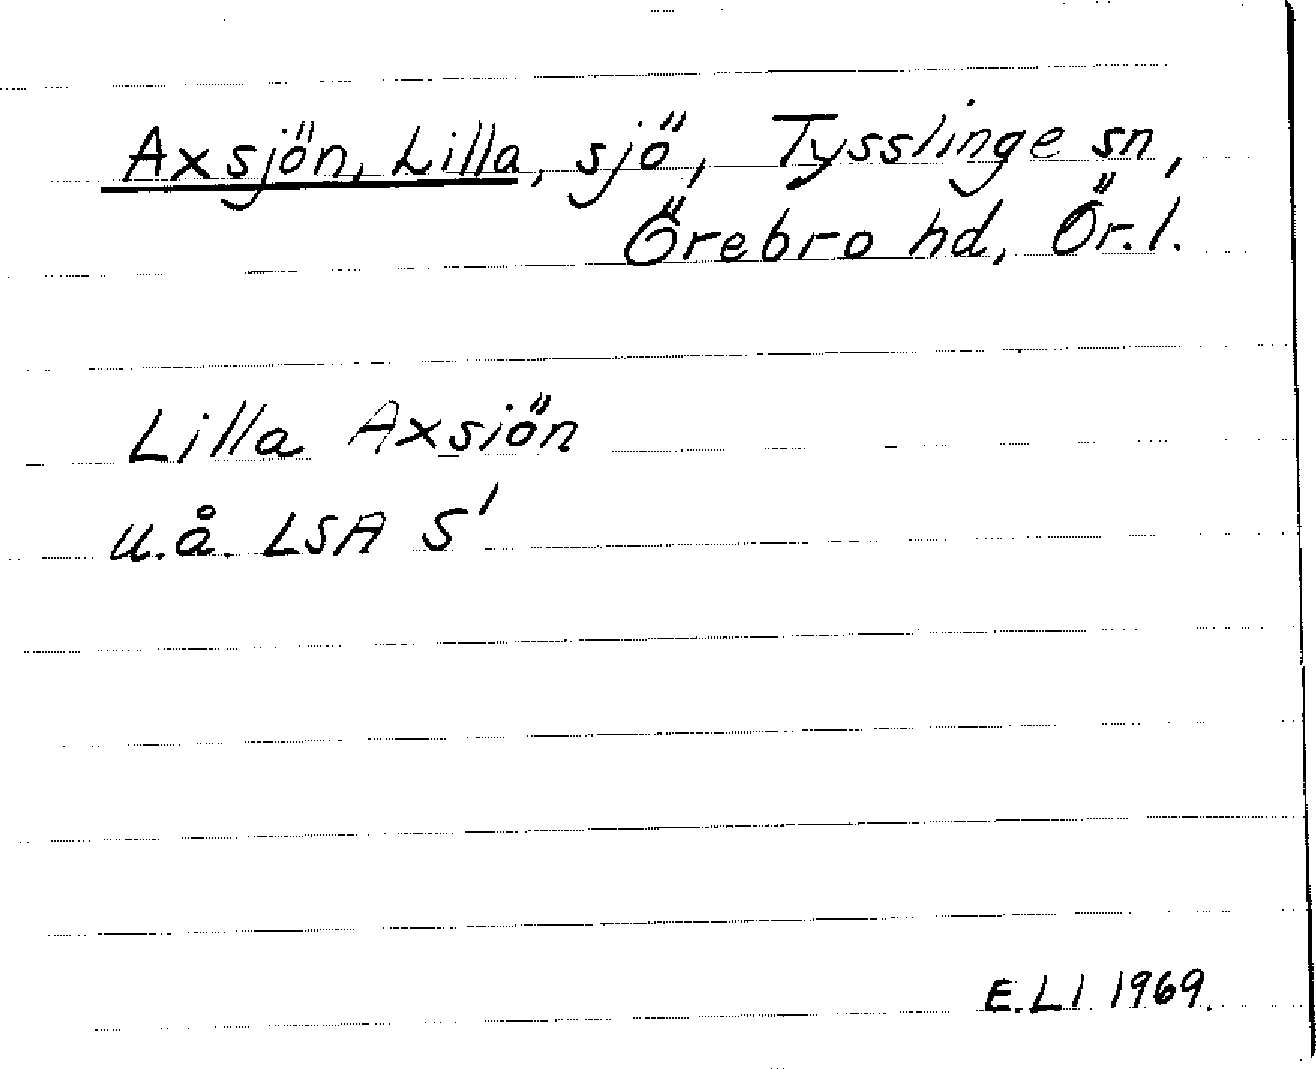 Axsjön, Lilla, sjö, Tysslinge sn,
Örebro hd, Ör. l.
Lilla Axsiön
u.å. LSA S'
E.LI 1969.